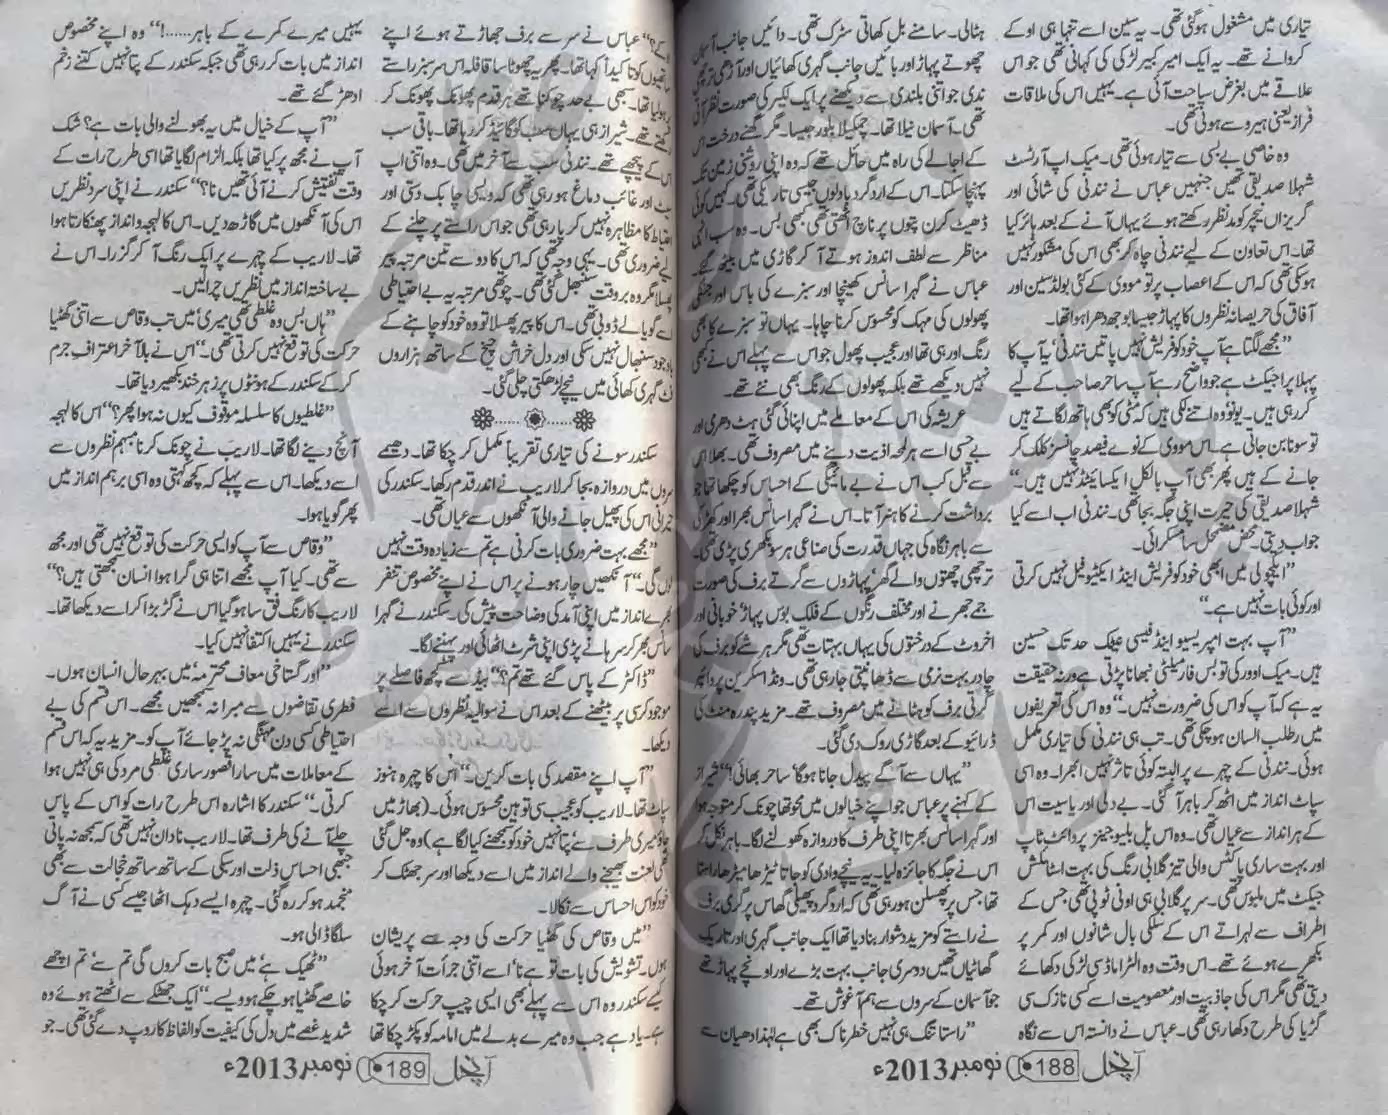 تیاری میں مشغول ہوگئی تھی۔ یہ سین اسے تنہا ہی اوکے
کروانے تھے۔ یہ ایک امیر کبیر لڑکی کی کہانی تھی جو اس
علاقے میں بغرض سیاحت آئی ہے۔ یہیں اس کی ملاقات
فراز یعنی ہیرو سے ہوئی تھی۔
وہ خاصی بے بسی سے تیار ہوئی تھی۔ میک اپ آرٹسٹ
شہلا صدیقی تھیں جنہیں عباس نے نندنی کی شائی اور
گریزاں نیچر کو مدنظر رکھتے ہوئے یہاں آنے کے بعد ہائر کیا
تھا۔ اس تعاون کے لیے نندنی چاہ کر بھی اس کی مشکور نہیں
ہوسکی تھی کہ اس کے اعصاب پر تو مووی کے کئی بولڈ سین اور
آفاق کی حریصانہ نظروں کا پہاڑ جیسا بوجھ دھرا ہوا تھا۔
”مجھے لگتا ہے آپ خود کو فریش نہیں پاتیں نندنی‘ یہ آپ کا
پہلا پراجیکٹ ہے جو واضح رہے آپ ساحر صاحب کے لیے
کر رہی ہیں۔ یونو وہ اتنے لکی ہیں کہ مٹی کو بھی ہاتھ لگاتے ہیں
تو سونا بن جاتی ہے۔ اس مووی کے نوے فیصد چانسز کلک کر
جانے کے ہیں پھر بھی آپ بالکل ایکسائیٹڈ نہیں ہیں۔“
شہلا صدیقی کی حیرت اپنی جگہ بجا تھی۔ نندنی اب اسے کیا
جواب دیتی۔ محض مضمحل سا مسکرائی۔
”ایکچولی میں ابھی خود کو فریش اینڈ ایکٹیو فیل نہیں کرتی
اور کوئی بات نہیں ہے۔“
”آپ بہت امپریسیو اینڈ فیسی عینک حد تک حسین
ہیں۔ میک اوور کی تو بس فارمیلٹی نبھانا پڑتی ہے ورنہ حقیقت
یہ ہے کہ آپ کو اس کی ضرورت نہیں۔“ وہ اس کی تعریفوں
میں رطب اللسان ہوچکی تھی۔ تب ہی نندنی کی تیاری مکمل
ہوئی۔ نندنی کے چہرے پر البتہ کوئی تاثر نہیں ابھرا۔ وہ اسی
سپاٹ انداز میں اٹھ کر باہر آ گئی۔ بے دلی اور یاسیت اس
کے ہر انداز سے عیاں تھی۔ وہ اس پل بلیو جینز پر وائٹ ٹاپ
اور بہت ساری پاکٹس والی تیز گلابی رنگ کی بہت اسٹائلش
جیکٹ میں ملبوس تھی۔ سر پر گلابی ہی اونی ٹوپی تھی جس کے
اطراف سے لہراتے اس کے سلکی بال شانوں اور کمر پر
بکھرے ہوئے تھے۔ اس وقت وہ الٹرا ماڈ سی لڑکی دکھائے
دیتی تھی مگر اس کی جاذبیت اور معصومیت اسے کسی نازک سی
گڑیا کی طرح دکھا رہی تھی۔ عباس نے دانستہ اس سے نگاہ
ہٹالی۔ سامنے بل کھاتی سڑک تھی۔ دائیں جانب آسمان
چھوتے پہاڑ اور بائیں جانب گہری کھائیاں اور آڑھی ترچھی
ندی جو اتنی بلندی سے دیکھنے پر ایک لکیر کی صورت نظر آتی
تھی۔ آسمان نیلا تھا۔ چمکیلا بلور جیسا۔ مگر گھنے درخت اس
کے اجالے کی راہ میں حائل تھے کہ وہ اپنی روشنی زمین تک
پہنچا سکتا۔ اس کے اردگرد بادلوں جیسی تاریکی تھی۔ کہیں کوئی
ڈھیٹ کرن پتوں پر ناچ اٹھتی تھی کبھی بس۔ وہ سب انہی
مناظر سے لطف اندوز ہوتے آ کر گاڑی میں بیٹھ گئے۔
عباس نے گہرا سانس کھینچا اور سبزے کی باس اور جنگلی
پھولوں کی مہک کو محسوس کرنا چاہا۔ یہاں تو سبزے کا بھی
رنگ اور ہی تھا اور عجیب پھول جو اس سے پہلے اس نے بھی
نہیں دیکھے تھے بلکہ پھولوں کے رنگ بھی نئے تھے۔
عریشہ کی اس کے معاملے میں اپنائی گئی ہٹ دھرمی اور
بے حسی اسے ہر لمحہ اذیت دینے میں مصروف تھی۔ بھلا اس
سے قبل کب اس نے بے مائیگی کے احساس کو چکھا تھا جو
برداشت کرنے کا ہنر آتا۔ اس نے گہرا سانس بھرا اور کھڑکی
سے باہر نگاہ کی جہاں قدرت کی صناعی ہر سو بکھری پڑی تھی۔
ترچھی چھتوں والے گھر‘ پہاڑوں سے گرتے برف کی صورت
جمے جھرنے اور مختلف رنگوں کے فلک بوس پہاڑ‘ خوبانی اور
اخروٹ کے درختوں کی یہاں بہتات تھی مگر ہر شے کو برف کی
چادر بہت نرمی سے ڈھانپتی جا رہی تھی۔ ونڈ اسکرین پر وائپر
گرتی برف کو ہٹانے میں مصروف تھے۔ مزید پندرہ منٹ کی
ڈرائیو کے بعد گاڑی روک دی گئی۔
”یہاں سے آگے پیدل جانا ہوگا‘ ساحر بھائی!“ شیراز
کے کہنے پر عباس جو اپنے خیالوں میں محو تھا چونک کر متوجہ ہوا
اور گہرا سانس بھرتا اپنی طرف کا دروازہ کھولنے لگا۔ باہر نکل کر
اس نے جگہ کا جائزہ لیا۔ یہ نیچے وادی کو جاتا ٹیڑھا میڑھا راستا
تھا جس پر پھسلن ہو رہی تھی کہ اردگرد پھیلی گھاس پر گری برف
نے راستے کو مزید دشوار بنا دیا تھا ایک جانب گہری اور تاریک
گھاٹیاں تھیں دوسری جانب بہت بڑے اور اونچے پہاڑ تھے
جو آسمان کے سروں سے ہم آغوش تھے۔
”راستا تنگ ہی نہیں خطرناک بھی ہے لہٰذا دھیان سے
آنچل 188 نومبر 2013ء
کے؟“ عباس نے سر سے برف جھاڑتے ہوئے اپنے
ساتھیوں کو تاکیداً کہا تھا۔ پھر یہ چھوٹا سا قافلہ اس سرسبز راستے
پر ہولیا تھا۔ سبھی بے حد چوکنا تھے ہر قدم پھونک پھونک کر
رکھتے تھے۔ شیراز ہی یہاں سب کو گائیڈ کر رہا تھا۔ باقی سب
اس کے پیچھے تھے۔ نندنی سب سے آخر میں تھی۔ وہ اتنی اپ
سیٹ اور غائب دماغ ہو رہی تھی کہ ویسی چابک دستی اور
احتیاط کا مظاہرہ نہیں کر پا رہی تھی جو اس راستے پر چلنے کے
لیے ضروری تھی۔ یہی وجہ تھی کہ اس کا دو سے تین مرتبہ پیر
پھسلا مگر وہ بروقت سنبھل گئی تھی۔ چوتھی مرتبہ یہ بے احتیاطی
اسے گویا لے ڈوبی تھی۔ اس کا پیر پھسلا تو وہ خود کو چاہنے کے
باوجود سنبھال نہیں سکی اور دل خراش چیخ کے ساتھ ہزاروں
فٹ گہری کھائی میں نیچے لڑھکتی چلی گئی۔
سکندر سونے کی تیاری تقریباً مکمل کر چکا تھا۔ دھیمے
سروں میں دروازہ بجا کر لاریب نے اندر قدم رکھا۔ سکندر کی
حیرانی اس کی پھیل جانے والی آنکھوں سے عیاں تھی۔
”مجھے بہت ضروری بات کرنی ہے تم سے زیادہ وقت نہیں
لوں گی۔“ آنکھیں چار ہونے پر اس نے اپنے مخصوص تنفر
بھرے انداز میں اپنی آمد کی وضاحت پیش کی۔ سکندر نے گہرا
سانس بھر کر سرہانے پڑی اپنی شرٹ اٹھائی اور پہننے لگا۔
”ڈاکٹر کے پاس گئے تھے تم؟“ بیڈ سے کچھ فاصلے پر
موجود کرسی پر بیٹھنے کے بعد اس نے سوالیہ نظروں سے اسے
دیکھا۔
”آپ اپنے مقصد کی بات کریں۔“ اس کا چہرہ ہنوز
سپاٹ تھا۔ لاریب کو عجیب سی توہین محسوس ہوئی۔ (بھاڑ میں
جاؤ میری طرف سے‘ پتا نہیں خود کو سمجھنے کیا لگا ہے) وہ جل گئی
تھی لعنت بھیجنے والے انداز میں اسے دیکھا اور سر جھٹک کر
خود کو اس احساس سے نکالا۔
”میں وقاص کی گھٹیا حرکت کی وجہ سے پریشان
ہوں۔ تشویش کی بات تو ہے نا‘ اسے اتنی جرأت آخر ہوئی
کیسے سکندر وہ اس سے پہلے بھی ایسی چیپ حرکت کر چکا
ہے۔ یاد ہے جب وہ میرے بدلے میں امامہ کو پکڑ چکا تھا
یہیں میرے کمرے کے باہر......!“ وہ اپنے مخصوص
انداز میں بات کر رہی تھی جبکہ سکندر کے پتا نہیں کتنے زخم
ادھڑ گئے تھے۔
”آپ کے خیال میں یہ بھولنے والی بات ہے؟ شک
آپ نے مجھ پر کیا تھا بلکہ الزام لگایا تھا اسی طرح رات کے
وقت تفتیش کرنے آئی تھیں نا؟“ سکندر نے اپنی سرد نظریں
اس کی آنکھوں میں گاڑھ دیں۔ اس کا لہجہ و انداز پھنکارتا ہوا
تھا۔ لاریب کے چہرے پر ایک رنگ آ کر گزرا۔ اس نے
بے ساختہ انداز میں نظریں چرالیں۔
”ہاں بس وہ غلطی تھی میری‘ میں تب وقاص سے اتنی گھٹیا
حرکت کی توقع نہیں کرتی تھی۔“ اس نے بالآخر اعتراف جرم
کر کے سکندر کے ہونٹوں پر زہر خند بکھیر دیا تھا۔
”غلطیوں کا سلسلہ موقوف کیوں نہ ہوا پھر؟“ اس کا لہجہ
آنچ دینے لگا تھا۔ لاریب نے چونک کر نا مبہم نظروں سے
اسے دیکھا۔ اس سے پہلے کہ کچھ کہتی وہ اسی برہم انداز میں
پھر گویا ہوا۔
”وقاص سے آپ کو ایسی حرکت کی توقع نہیں تھی اور مجھ
سے تھی۔ کیا آپ مجھے اتنا ہی گرا ہوا انسان سمجھتی ہیں؟“
لاریب کا رنگ فق سا ہوگیا اس نے گڑبڑا کر اسے دیکھا تھا۔
سکندر نے یہیں اکتفا نہیں کیا۔
”اور گستاخی معاف محترمہ‘ میں بہرحال انسان ہوں۔
فطری تقاضوں سے مبرا نہ سمجھیں مجھے۔ اس قسم کی بے
احتیاطی کسی دن مہنگی نہ پڑ جائے آپ کو۔ مزید یہ کہ اس قسم
کے معاملات میں سارا قصور ساری غلطی مرد کی ہی نہیں ہوا
کرتی۔“ سکندر کا اشارہ اس طرح رات کو اس کے پاس
چلے آنے کی طرف تھا۔ لاریب نادان نہیں تھی کہ سمجھ نہ پاتی
جبھی احساس ذلت اور سبکی کے ساتھ ساتھ خجالت سے بھی
منجمد ہو کر رہ گئی۔ چہرہ ایسے دہک اٹھا جیسے کسی نے آگ
سلگا ڈالی ہو۔
”ٹھیک ہے‘ میں صبح بات کروں گی تم سے‘ تم اچھے
خاصے گھٹیا ہوچکے ہو ویسے۔“ ایک جھٹکے سے اٹھتے ہوئے وہ
شدید غصے میں دل کی کیفیت کو الفاظ کا روپ دے گئی تھی۔ جو
آنچل 189 نومبر 2013ء